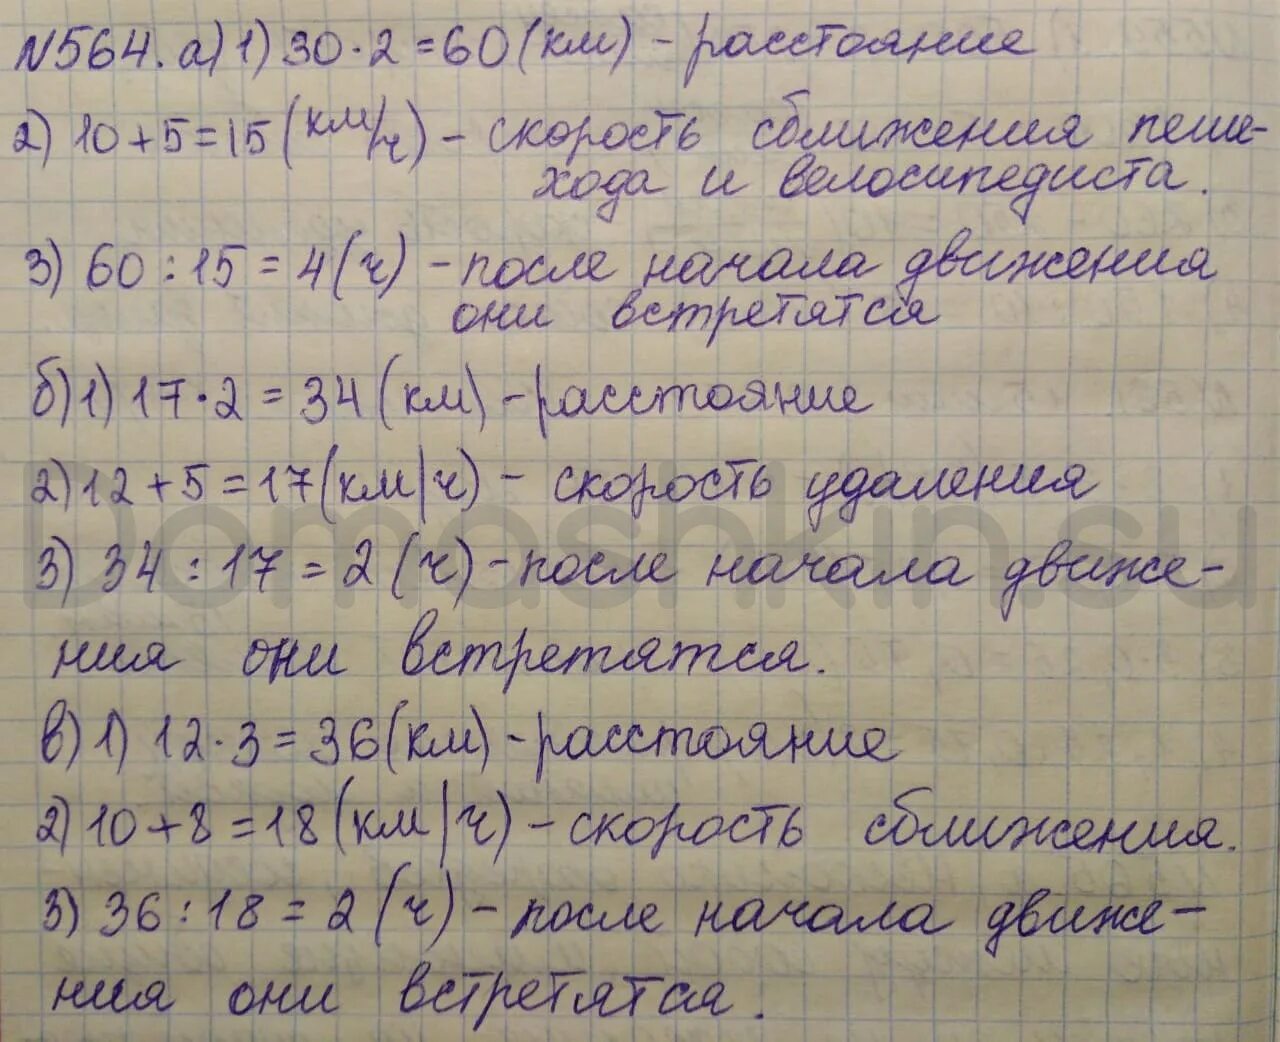 №564. а) 1) 30·2=60 (км) - расстояние
2) 10+5=15 (км/ч) - скорость сближения пеше-
хода и велосипедиста.
3) 60:15=4 (ч) - после начала движения
они встретятся
б) 1) 17·2=34 (км) - расстояние
2) 12+5=17 (км/ч) - скорость удаления
3) 34:17=2 (ч) - после начала движе-
ния они встретятся.
в) 1) 12·3=36 (км) - расстояние
2) 10+8=18 (км/ч) - скорость сближения.
3) 36:18=2 (ч) - после начала движе-
ния они встретятся.
Domashkin.su